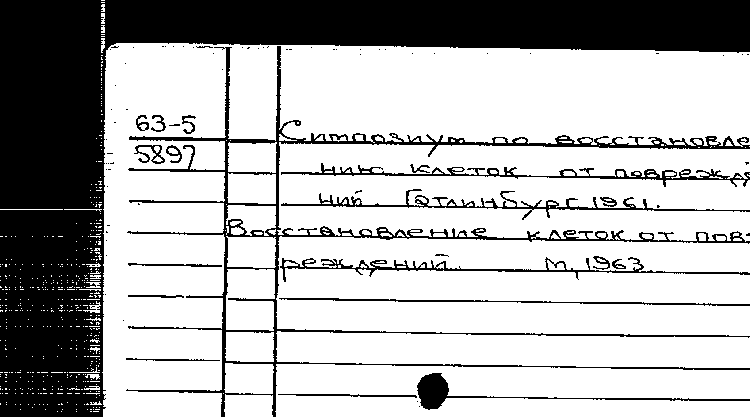 63-5
5897
Симпозиум по восстановле
нию клеток от поврежде
ний. Гатлинбург. 1961.
Восстановление клеток от пов
реждений. М., 1963.